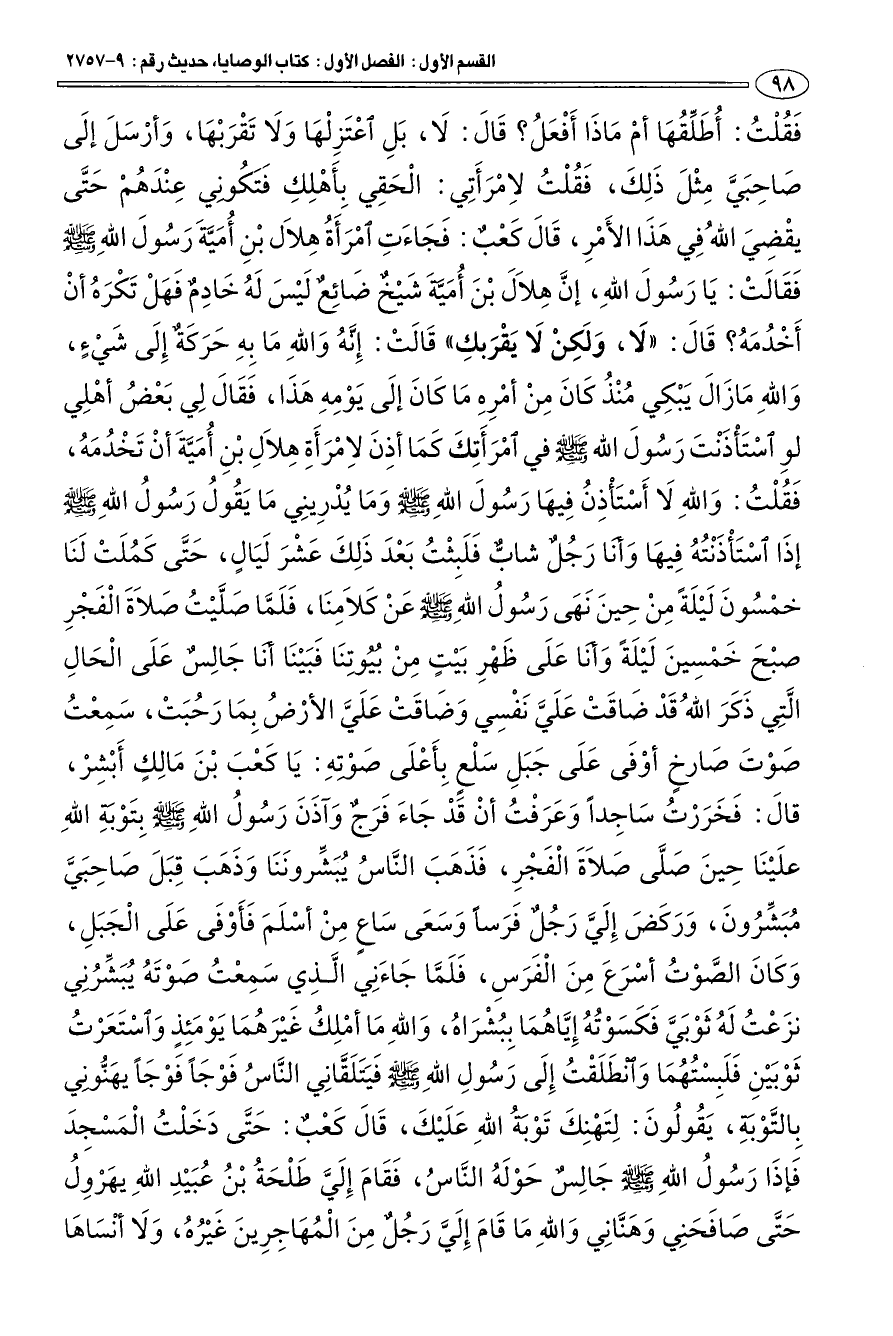 القسم الأول: الفصل الأول: كتاب الوصايا، حديث رقم: ٩-٢٧٥٧
٩٨
فَقُلْتُ: أُطَلِّقُهَا أمْ مَاذَا أَفْعَلُ؟ قَالَ: لَا، بَلِ ٱعْتَزِلْهَا وَلَا تَقْرَبْهَا، وَأرْسَلَ إلَى
صَاحِبَيَّ مِثْلَ ذَلِكَ، فَقُلْتُ لِامْرَأَتِي: الْحَقِي بِأَهْلِكِ فَتَكُونِي عِنْدَهُمْ حَتَّى
يقْضِيَ اللهُ فِي هَذَا الأمْرِ، قَالَ كَعْبٌ: فَجَاءَتِ ٱمْرَأَةُ هِلاَلِ بْنِ أُمَيَّةَ رَسُولَ اللهِ ﷺ
فَقَالَتْ: يَا رَسُولَ اللهِ، إنَّ هِلَالَ بْنَ أُمَيَّةَ شَيْخٌ ضَائِعٌ لَيْسَ لَهُ خَادِمٌ فَهَلْ تَكْرَهُ أنْ
أَخْدُمَهُ؟ قَالَ: «لَا، وَلَكِنْ لَا يَقْرَبكِ» قَالَتْ: إِنَّهُ وَاللهِ مَا بِهِ حَرَكَةٌ إِلَى شَيْءٍ،
وَاللهِ مَازَالَ يَبْكِي مُنْذُ كَانَ مِنْ أمْرِهِ مَا كَانَ إلَى يَوْمِهِ هَذَا، فَقَالَ لِي بَعْضُ أهْلِي
لوِ ٱسْتَأْذَنْتَ رَسُولَ الله ﷺ في ٱمْرَأَتِكَ كَمَا أذِنَ لِامْرَأةِ هِلاَلِ بْنِ أُمَيَّةَ أنْ تَخْدُمَهُ،
فَقُلْتُ: وَاللهِ لَا أَسْتَأْذِنُ فِيهَا رَسُولَ اللهِ ﷺ وَمَا يُدْرِينِي مَا يَقُولُ رَسُولُ اللهِ ﷺ
إذَا ٱسْتَأْذَنْتُهُ فِيهَا وَأنَا رَجُلٌ شابٌّ فَلَبِثْتُ بَعْدَ ذَلِكَ عَشْرَ لَيَالٍ، حَتَّى كَمُلَتْ لَنَا
خمْسُونَ لَيْلَةً مِنْ حِينَ نَهَى رَسُولُ اللهِ ﷺ عَنْ كَلاَمِنَا، فَلَمَّا صَلَّيْتُ صَلاَةَ الْفَجْرِ
صبْحَ خَمْسِينَ لَيْلَةً وَأنَا عَلَى ظَهْرِ بَيْتٍ مِنْ بُيُوتِنَا فَبَيْنَا أنَا جَالِسٌ عَلَى الْحَالِ
الَّتِي ذَكَرَ اللهُ قَدْ ضَاقَتْ عَلَيَّ نَفْسِي وَضَاقَتْ عَلَيَّ الأرْضُ بِمَا رَحُبَتْ، سَمِعْتُ
صَوْتَ صَارِخٍ أوْفَى عَلَى جَبَلِ سَلْعٍ بِأَعْلَى صَوْتِهِ: يَا كَعْبَ بْنَ مَالِكٍ أَبْشِرْ،
قالَ: فَخَرَرْتُ سَاجِداً وَعَرَفْتُ أنْ قَدْ جَاءَ فَرَجٌ وَآذَنَ رَسُولُ اللهِ ﷺ بِتَوْبَةِ اللهِ
علَيْنَا حِينَ صَلَّى صَلاَةَ الْفَجْرِ، فَذَهَبَ النَّاسُ يُبَشِّرونَنَا وَذَهَبَ قِبَلَ صَاحِبَيَّ
مُبَشِّرُونَ، وَرَكَضَ إِلَيَّ رَجُلٌ فَرَساً وَسَعَى سَاعٍ مِنْ أسْلَمَ فَأَوْفَى عَلَى الْجَبَلِ،
وَكَانَ الصَّوْتُ أسْرَعَ مِنَ الْفَرَسِ، فَلَمَّا جَاءَنِي الَّـذِي سَمِعْتُ صَوْتَهُ يُبَشِّرُنِي
نزَعْتُ لَهُ ثَوْبَيَّ فَكَسَوْتُهُ إيَّاهُمَا بِبُشْرَاهُ، وَاللهِ مَا أمْلِكُ غَيْرَهُمَا يَوْمَئِذٍ وَٱسْتَعَرْتُ
ثَوْبَيْنِ فَلَبِسْتُهُمَا وَٱنْطَلَقْتُ إلَى رَسُولِ اللهِ ﷺ فَيَتَلَقَّانِي النَّاسُ فَوْجَاً فَوْجَاً يهَنُّونِي
بِالتَّوْبَةِ، يَقُولُونَ: لِتَهْنِكَ تَوْبَةُ اللهِ عَلَيْكَ، قَالَ كَعْبٌ: حَتَّى دَخَلْتُ الْمَسْجِدَ
فَإذَا رَسُولُ اللهِ ﷺ جَالِسٌ حَوْلَهُ النَّاسُ، فَقَامَ إلَيَّ طَلْحَةُ بْنُ عُبَيْدِ اللهِ يهَرْوِلُ
حَتَّى صَافَحَنِي وَهَنَّانِي وَاللهِ مَا قَامَ إلَيَّ رَجُلٌ مِنَ الْمُهَاجِرِينَ غَيْرُهُ، وَلَا أنْسَاهَا